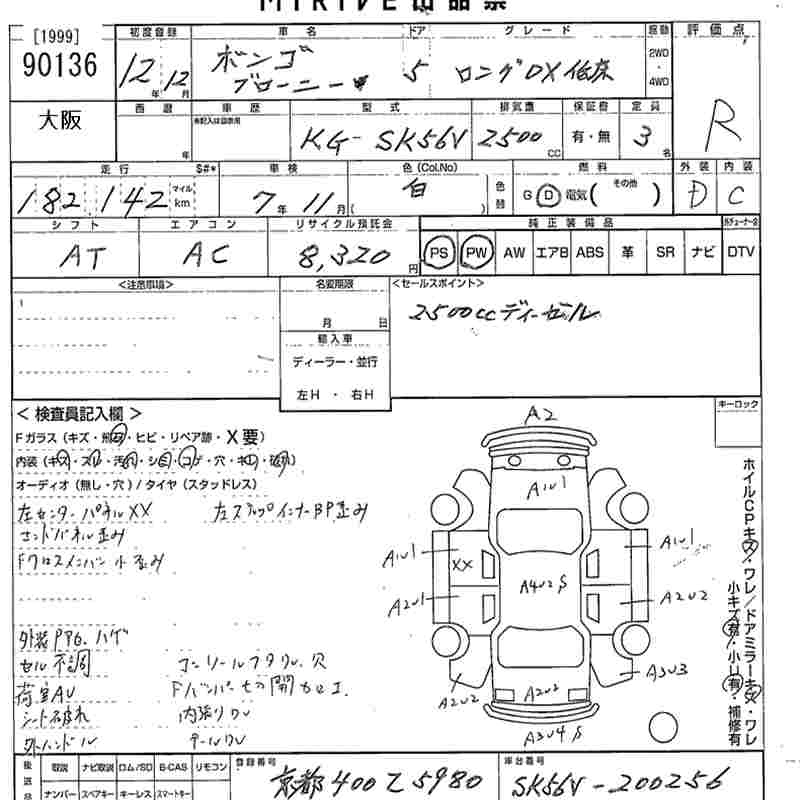 MIRIVE出品票
[1999]
90136
大阪
初度登録
12年12月
車名
ボンゴ
ブローニー
ドア
5
グレード
ロングDX低床
駆動
2WD
・
4WD
評価点
R
西暦
年
車歴
有記入は自家用
型式
KG-SK56V
排気量
2500
CC
保証書
有・無
定員
3名
走行
S#*
182,142
マイル
km
車検
7年11月
色(Col.No)
白
( )
色替
燃料
G D 電気( その他 )
外装
D
内装
C
シフト
AT
エアコン
AC
リサイクル預託金
8,320円
純正装備品
PS PW AW エアB ABS 革 SR ナビ DTV
<注意事項>
名変期限
月 日
輸入車
ディーラー・並行
左H ・ 右H
<セールスポイント>
2500ccディーゼル
<検査員記入欄>
キーロック
Fガラス(キズ・無・ヒビ・リペア跡・X要)
オーディオ(無し・穴)/タイヤ(スタッドレス)
左センターパネルXX
左ステップインナーBP歪み
エンドパネル歪み
Fクロスメンバー小歪み
外装PPG.ハゲ
セル不調
コンソールフタワレ.穴
荷室AU
シート破れ
内張りワレ
外ハンドル
テールワレ
A2
A1U1
A1U1
XX
A1U1
A4U2S
A2U1
A2U2
A2U2
A3U3
A2U2
A3U4S
ホイルCPキズ・ワレ/ドアミラーキズ・ワレ
小キズ有・小U有・補修有
後送品
取説 ナビ取説 ロム/SD B-CAS リモコン
ナンバー スペアキー キーレス スマートキー
登録番号
京都400て5980
車台番号
SK56V-200256